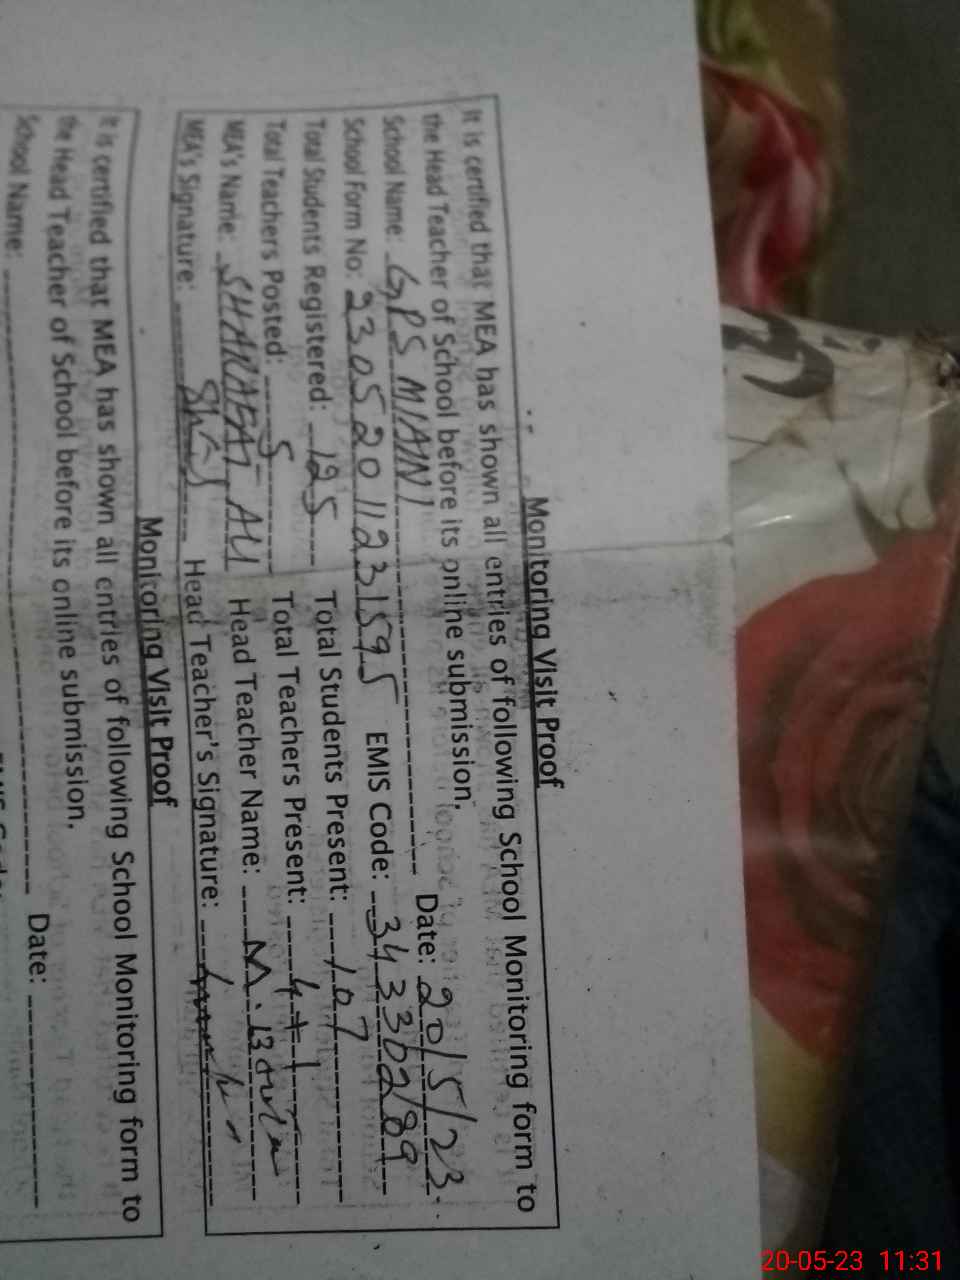 Monitoring Visit Proof
It is certified that MEA has shown all entries of following School Monitoring form to
the Head Teacher of School before its online submission.
School Name: GPS MIANI Date: 20/5/23.
School Form No: 23052011231595 EMIS Code: 34330289
Total Students Registered: 125 Total Students Present: 107
Total Teachers Posted: 5 Total Teachers Present: 4+1
MEA's Name: SHARAFAT ALI Head Teacher Name: M.
MEA's Signature: Head Teacher's Signature:
Monitoring Visit Proof
It is certified that MEA has shown all entries of following School Monitoring form to
the Head Teacher of School before its online submission.
School Name: Date:
20-05-23 11:31